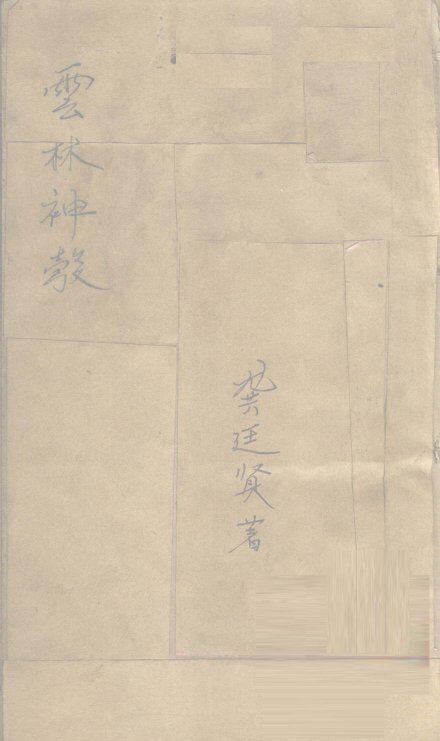 雲林神彀
龚廷贤著